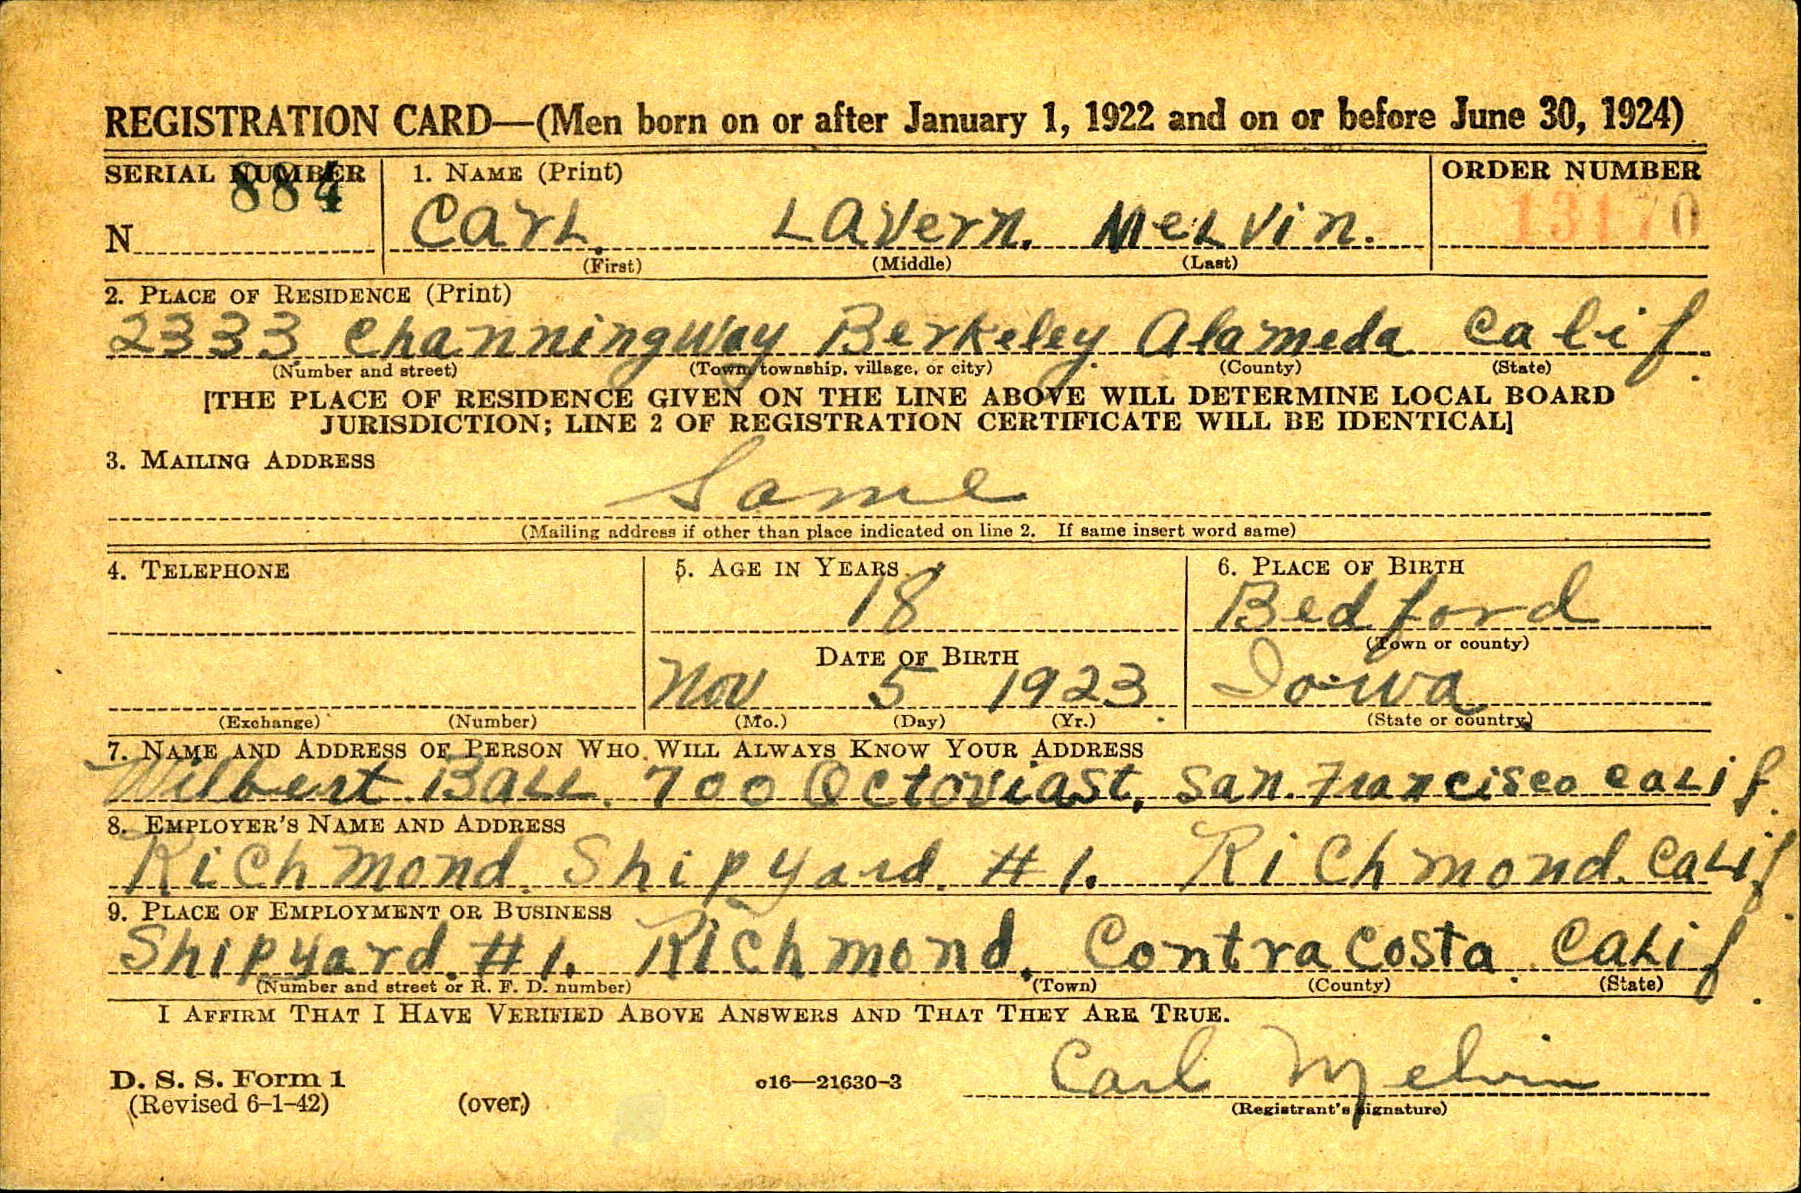 REGISTRATION CARD—(Men born on or after January 1, 1922 and on or before June 30, 1924)
SERIAL NUMBER 1. NAME (Print) ORDER NUMBER
884 13170
N Carl. LaVern. Melvin.
(First) (Middle) (Last)
2. PLACE OF RESIDENCE (Print)
2333 Channingway Berkeley. Alameda Calif.
(Number and street) (Town, township, village, or city) (County) (State)
[THE PLACE OF RESIDENCE GIVEN ON THE LINE ABOVE WILL DETERMINE LOCAL BOARD
JURISDICTION; LINE 2 OF REGISTRATION CERTIFICATE WILL BE IDENTICAL]
3. MAILING ADDRESS
Same
(Mailing address if other than place indicated on line 2. If same insert word same)
4. TELEPHONE 5. AGE IN YEARS 6. PLACE OF BIRTH
18 Bedford
(Town or county)
DATE OF BIRTH
Nov 5 1923 Iowa
(Exchange) (Number) (Mo.) (Day) (Yr.) (State or country)
7. NAME AND ADDRESS OF PERSON WHO WILL ALWAYS KNOW YOUR ADDRESS
Wilbert Ball. 700 Octovia St, San. Francisco Calif.
8. EMPLOYER'S NAME AND ADDRESS
Richmond. Shipyard. #1. Richmond. Calif.
9. PLACE OF EMPLOYMENT OR BUSINESS
Shipyard. #1. Richmond, Contra Costa. Calif.
(Number and street or R. F. D. number) (Town) (County) (State)
I AFFIRM THAT I HAVE VERIFIED ABOVE ANSWERS AND THAT THEY ARE TRUE.
Carl Melvin
D. S. S. Form 1 c16—21630-3
(Revised 6-1-42) (over) (Registrant's signature)